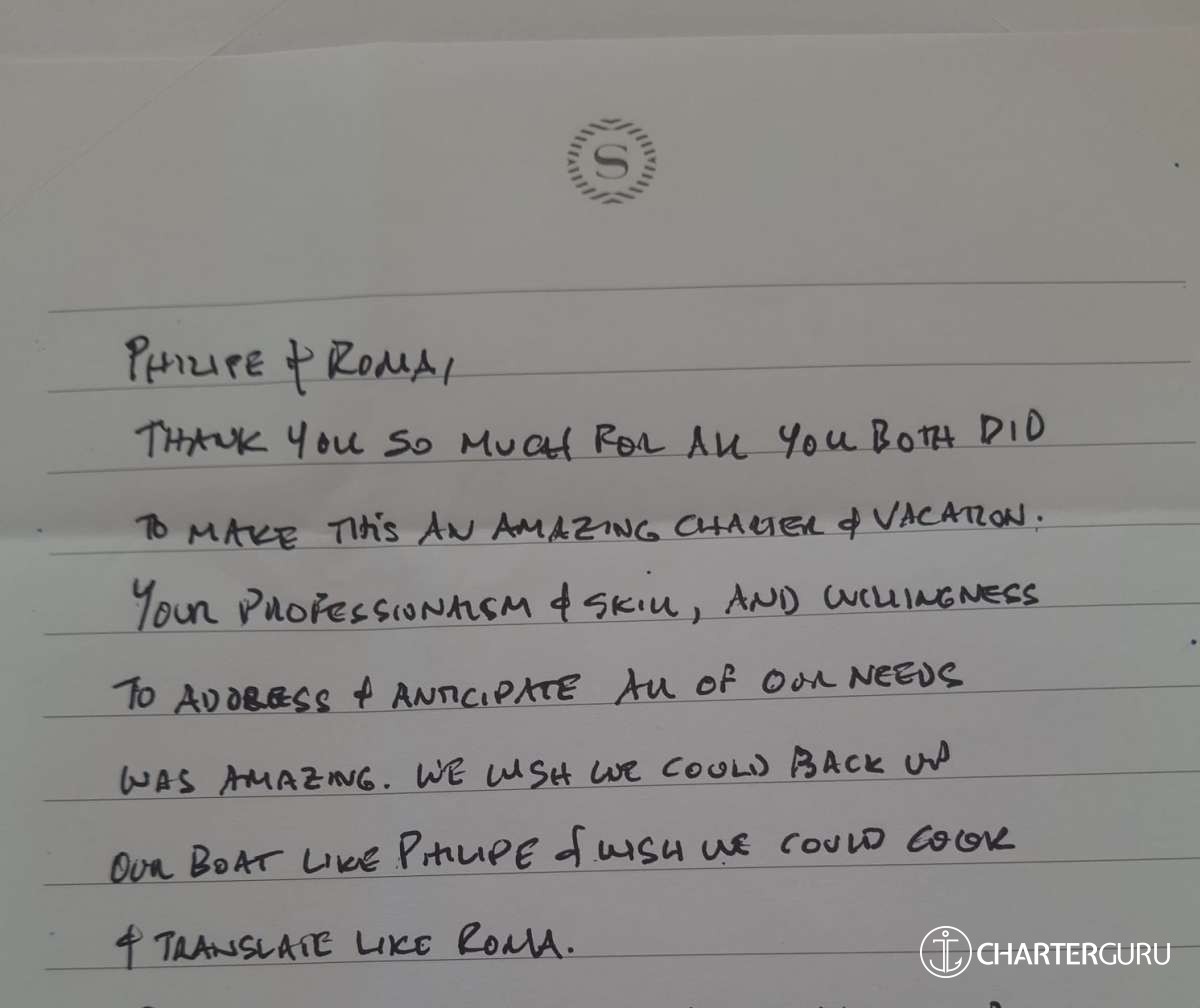 S
PHILIPE & ROMA,
THANK YOU SO MUCH FOR ALL YOU BOTH DID
TO MAKE THIS AN AMAZING CHARTER & VACATION.
YOUR PROFESSIONALISM & SKILL, AND WILLINGNESS
TO ADDRESS & ANTICIPATE ALL OF OUR NEEDS
WAS AMAZING. WE WISH WE COULD BACK UP
OUR BOAT LIKE PHILIPE & WISH WE COULD COOK
& TRANSLATE LIKE ROMA.
CHARTERGURU